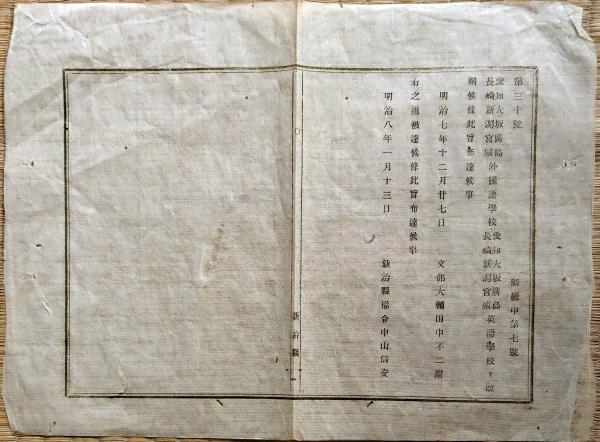 第三十號
縣廳甲第七號
愛知大坂廣島長崎新潟宮城外國語學校愛知大坂廣島長崎新潟宮城英語學校ト改
稱候條此旨布達候事
明治七年十二月廿七日 文部大輔田中不二麿
右之通被達候條此旨布達候事
明治八年一月十三日 新治縣權令中山信安
新治縣